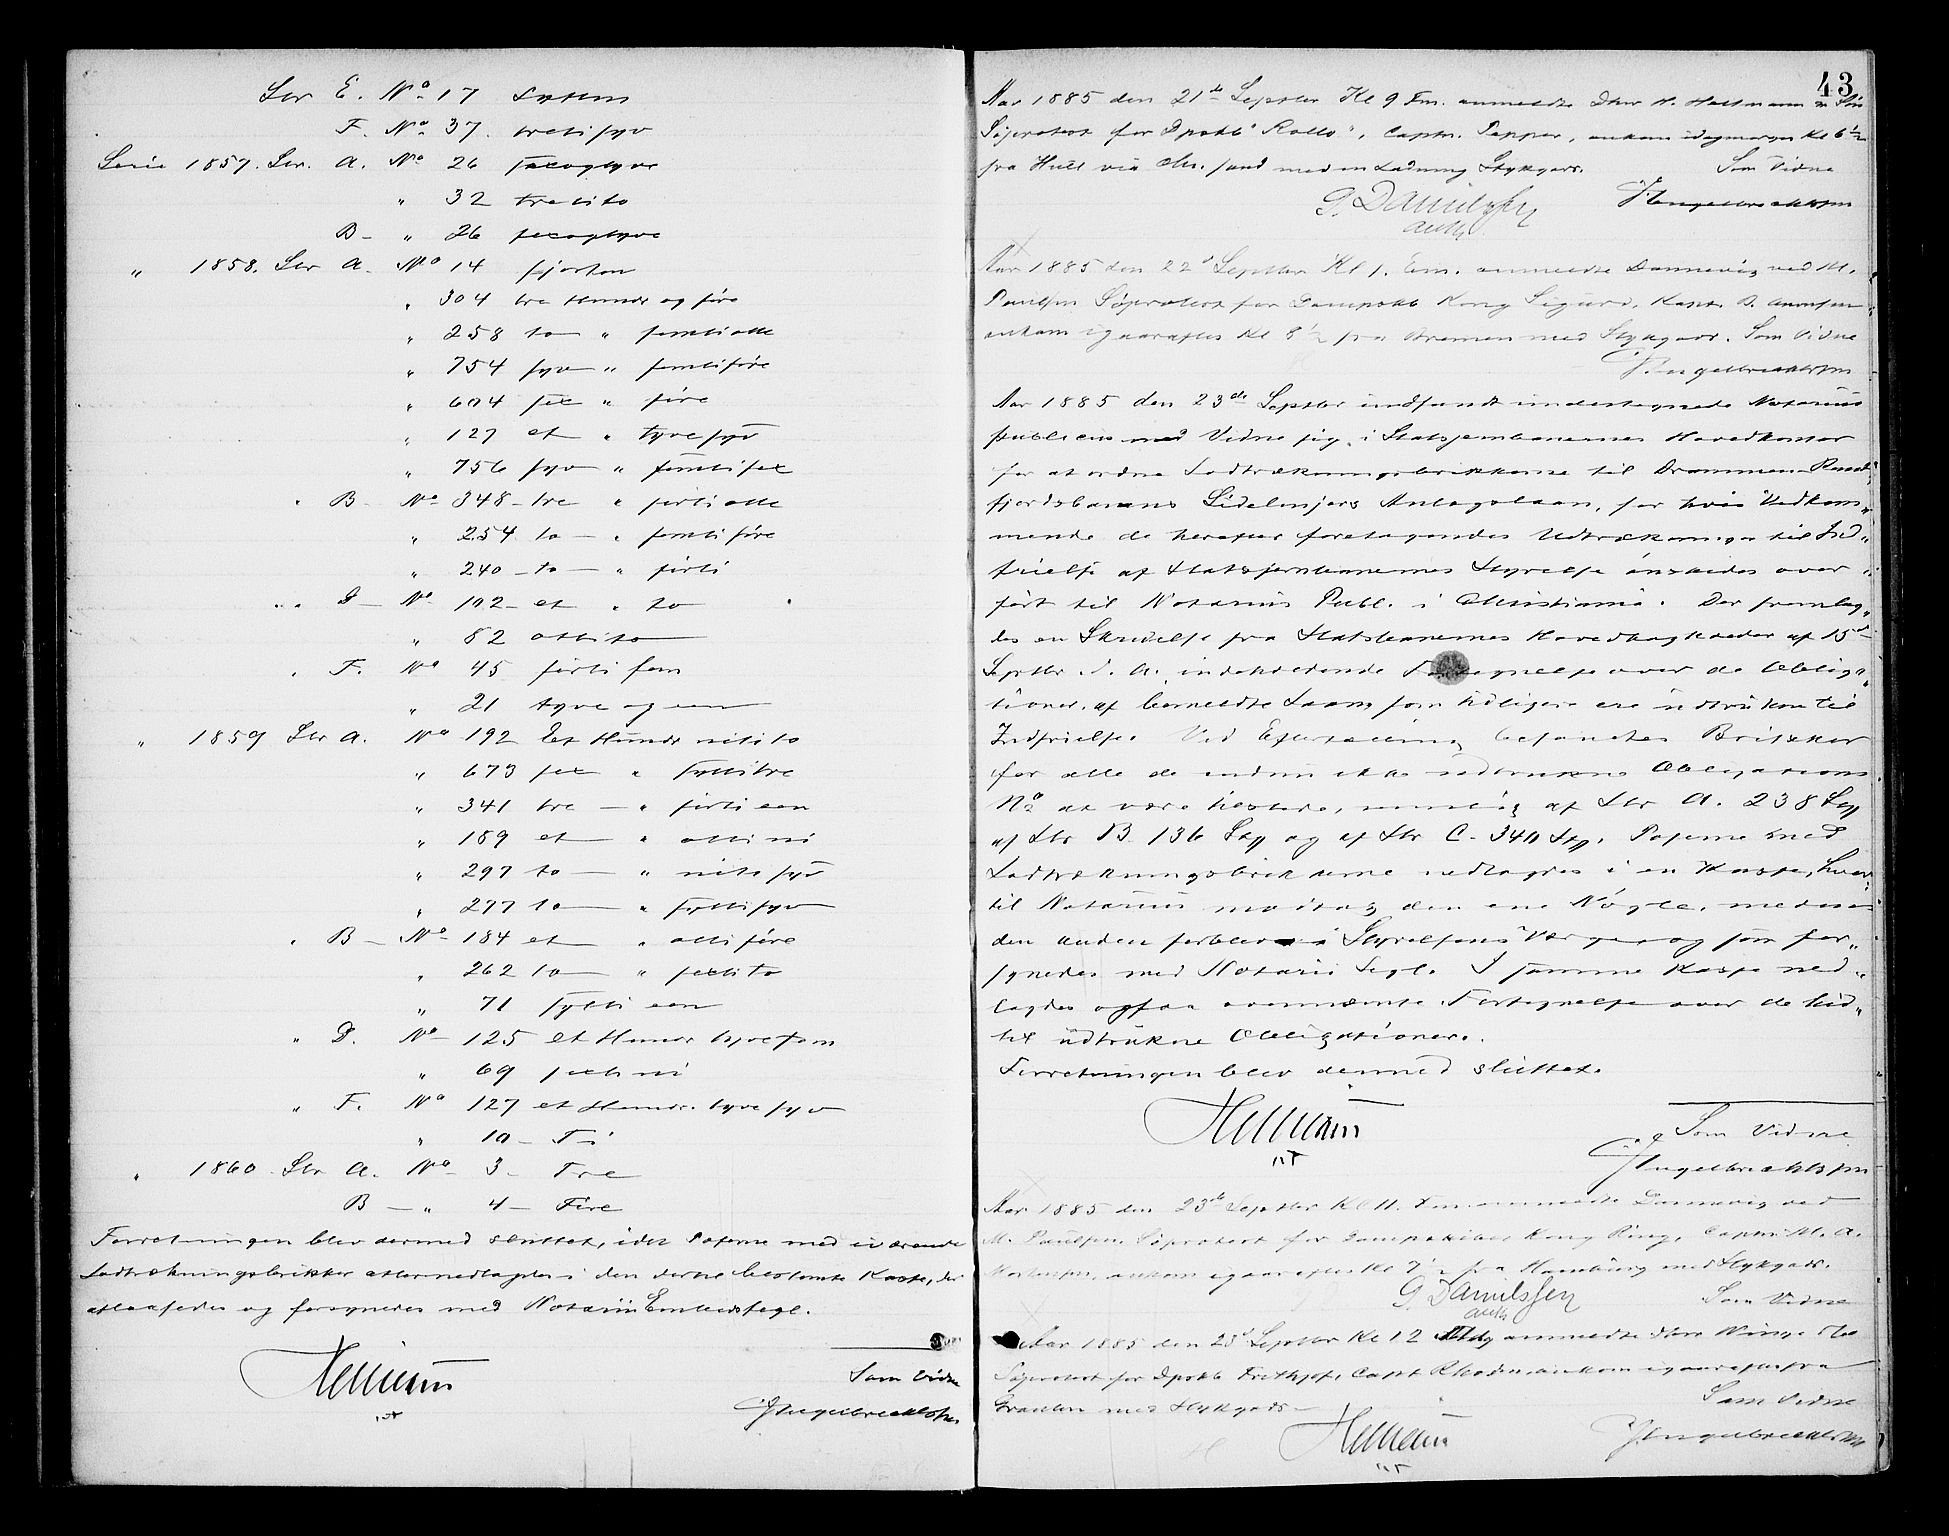 Ser E. No 17 sytten
F. No 37. treti syv
Serie 1857. Ser. A. No 26 sexogtyve
" 32 tretito
B - " 26 sexogtyve
" 1858. Ser A. No 14 fjorten
" 304 tre Hundr og fire
" 258 to " femtiotte
" 754 syv " femtifire
" 604 sex " fire
" 127 et " tyvesyv
" 756 syv " femtisex
" B - No 348 - tre " førtiotte
" 254 to - " femtifire
" 240 - to - " førti
" " D - No 102 - et " to
" 82 ottito
" F. No 45 førti fem
" 21 tyve og een
" 1859 Ser A. No 192 Et Hundr nitito
" 673 sex " syttitre
" 341 tre - " førti een
" 189 et - " otti ni
" 297 to - " niti syv
" 277 to - " sytti syv
" B - No 184 et " otti fire
" 262 to - " sexti to
" 71 sytti een
" D. No 125 et Hundr tyvefem
" 69 sexti ni
" F. No 127 et Hundr. tyve syv
" 10 - Ti
" 1860 Ser A. No 3 - Tre
B - " 4 - Fire
Forretningen blev dermed sluttet, idet Poserne med værende
Lodtrækningsbrikker atter nedlagdes i den dertil bestemte Kasse, der
aflaasedes og forsynedes med Notarii Embedssegl.
Som Vidne
JEngelbrechtsen
43
Aar 1885 den 21de Septbr Kl 9 Fm. anmeldte Dhrr H. Heitmann &
Søprotest for Dpskb "Rollo", Captn. Pepper, ankom idagmorges Kl 6 1/2
fra Hull via Chr.sand med en Ladning Stykgods. Som Vidne
G. Danielssen JEngelbrechtsen
auth
Aar 1885 den 22d Septbr Kl 1. Em. anmeldte Dannevig ved M.
Paulsen Søprotest for Dampskb Kong Sigurd, Kapt. B.
ankom igaaraftes Kl 8 1/2 fra Bremen med Stykgods. Som Vidne
JEngelbrechtsen
Aar 1885 den 23de Septbr indfandt undertegnede Notarius
publicus med Vidne sig i Statsjernbanernes Hovedkontor
for at ordne Lodtrækningsbrikkerne til Drammen-Rands
fjordsbanens Sidelinjers Anlægslaan, for hvis Vedkom„
mende de herefter foretagendes Udtrækninger til Ind„
frielse af Statsjernbanernes Styrelse ønskedes over„
ført til Notarius Publ. i Christiania. Der fremlag„
des en Skrivelse fra Statsbanernes Hovedbogholder af 15de
Septbr d. A. indeholdende Fortegnelse over de Obliga„
tioner af bemeldte Laan, som tidligere ere udtrukne til
Indfrielse. Ved Eftertælling befandtes Brikker
for alle de endnu ikke udtrukne Obligations
No at være tilstede, nemlig af Ser A. 238 Stk
af Ser B 136 Stk og af Ser C. 340 Stk. Poserne med
Lodtrækningsbrikkerne nedlagdes i en Kasse, hvor„
til Notarius modtog den ene Nøgle, medens
den anden forblev i Styrelsens Værge og som for„
synedes med Notarii Segl. I samme Kasse ned„
lagdes ogsaa ovennævnte Fortegnelse over de hid„
til udtrukne Obligationer.
Forretningen blev dermed sluttet.
Som Vidne
JEngelbrechtsen
Aar 1885 den 23de Septbr Kl 11. Fm anmeldte Dannevig ved
M. Paulsen Søprotest for Dampskibet Kong Ring, Captn M. A.
Mortensen, ankom igaaraftes Kl 7 1/2 fra Hamburg med Stykgods.
G. Danielssen Som Vidne
auth
Aar 1885 den 23d Septbr Kl 12 Mdg anmeldte dhrr Winge & Co
Søprotest for Dpskb Frithjof, Capt Rhode, ankom igaaraftes fra
med Stykgods - Som Vidne
JEngelbrechtsen